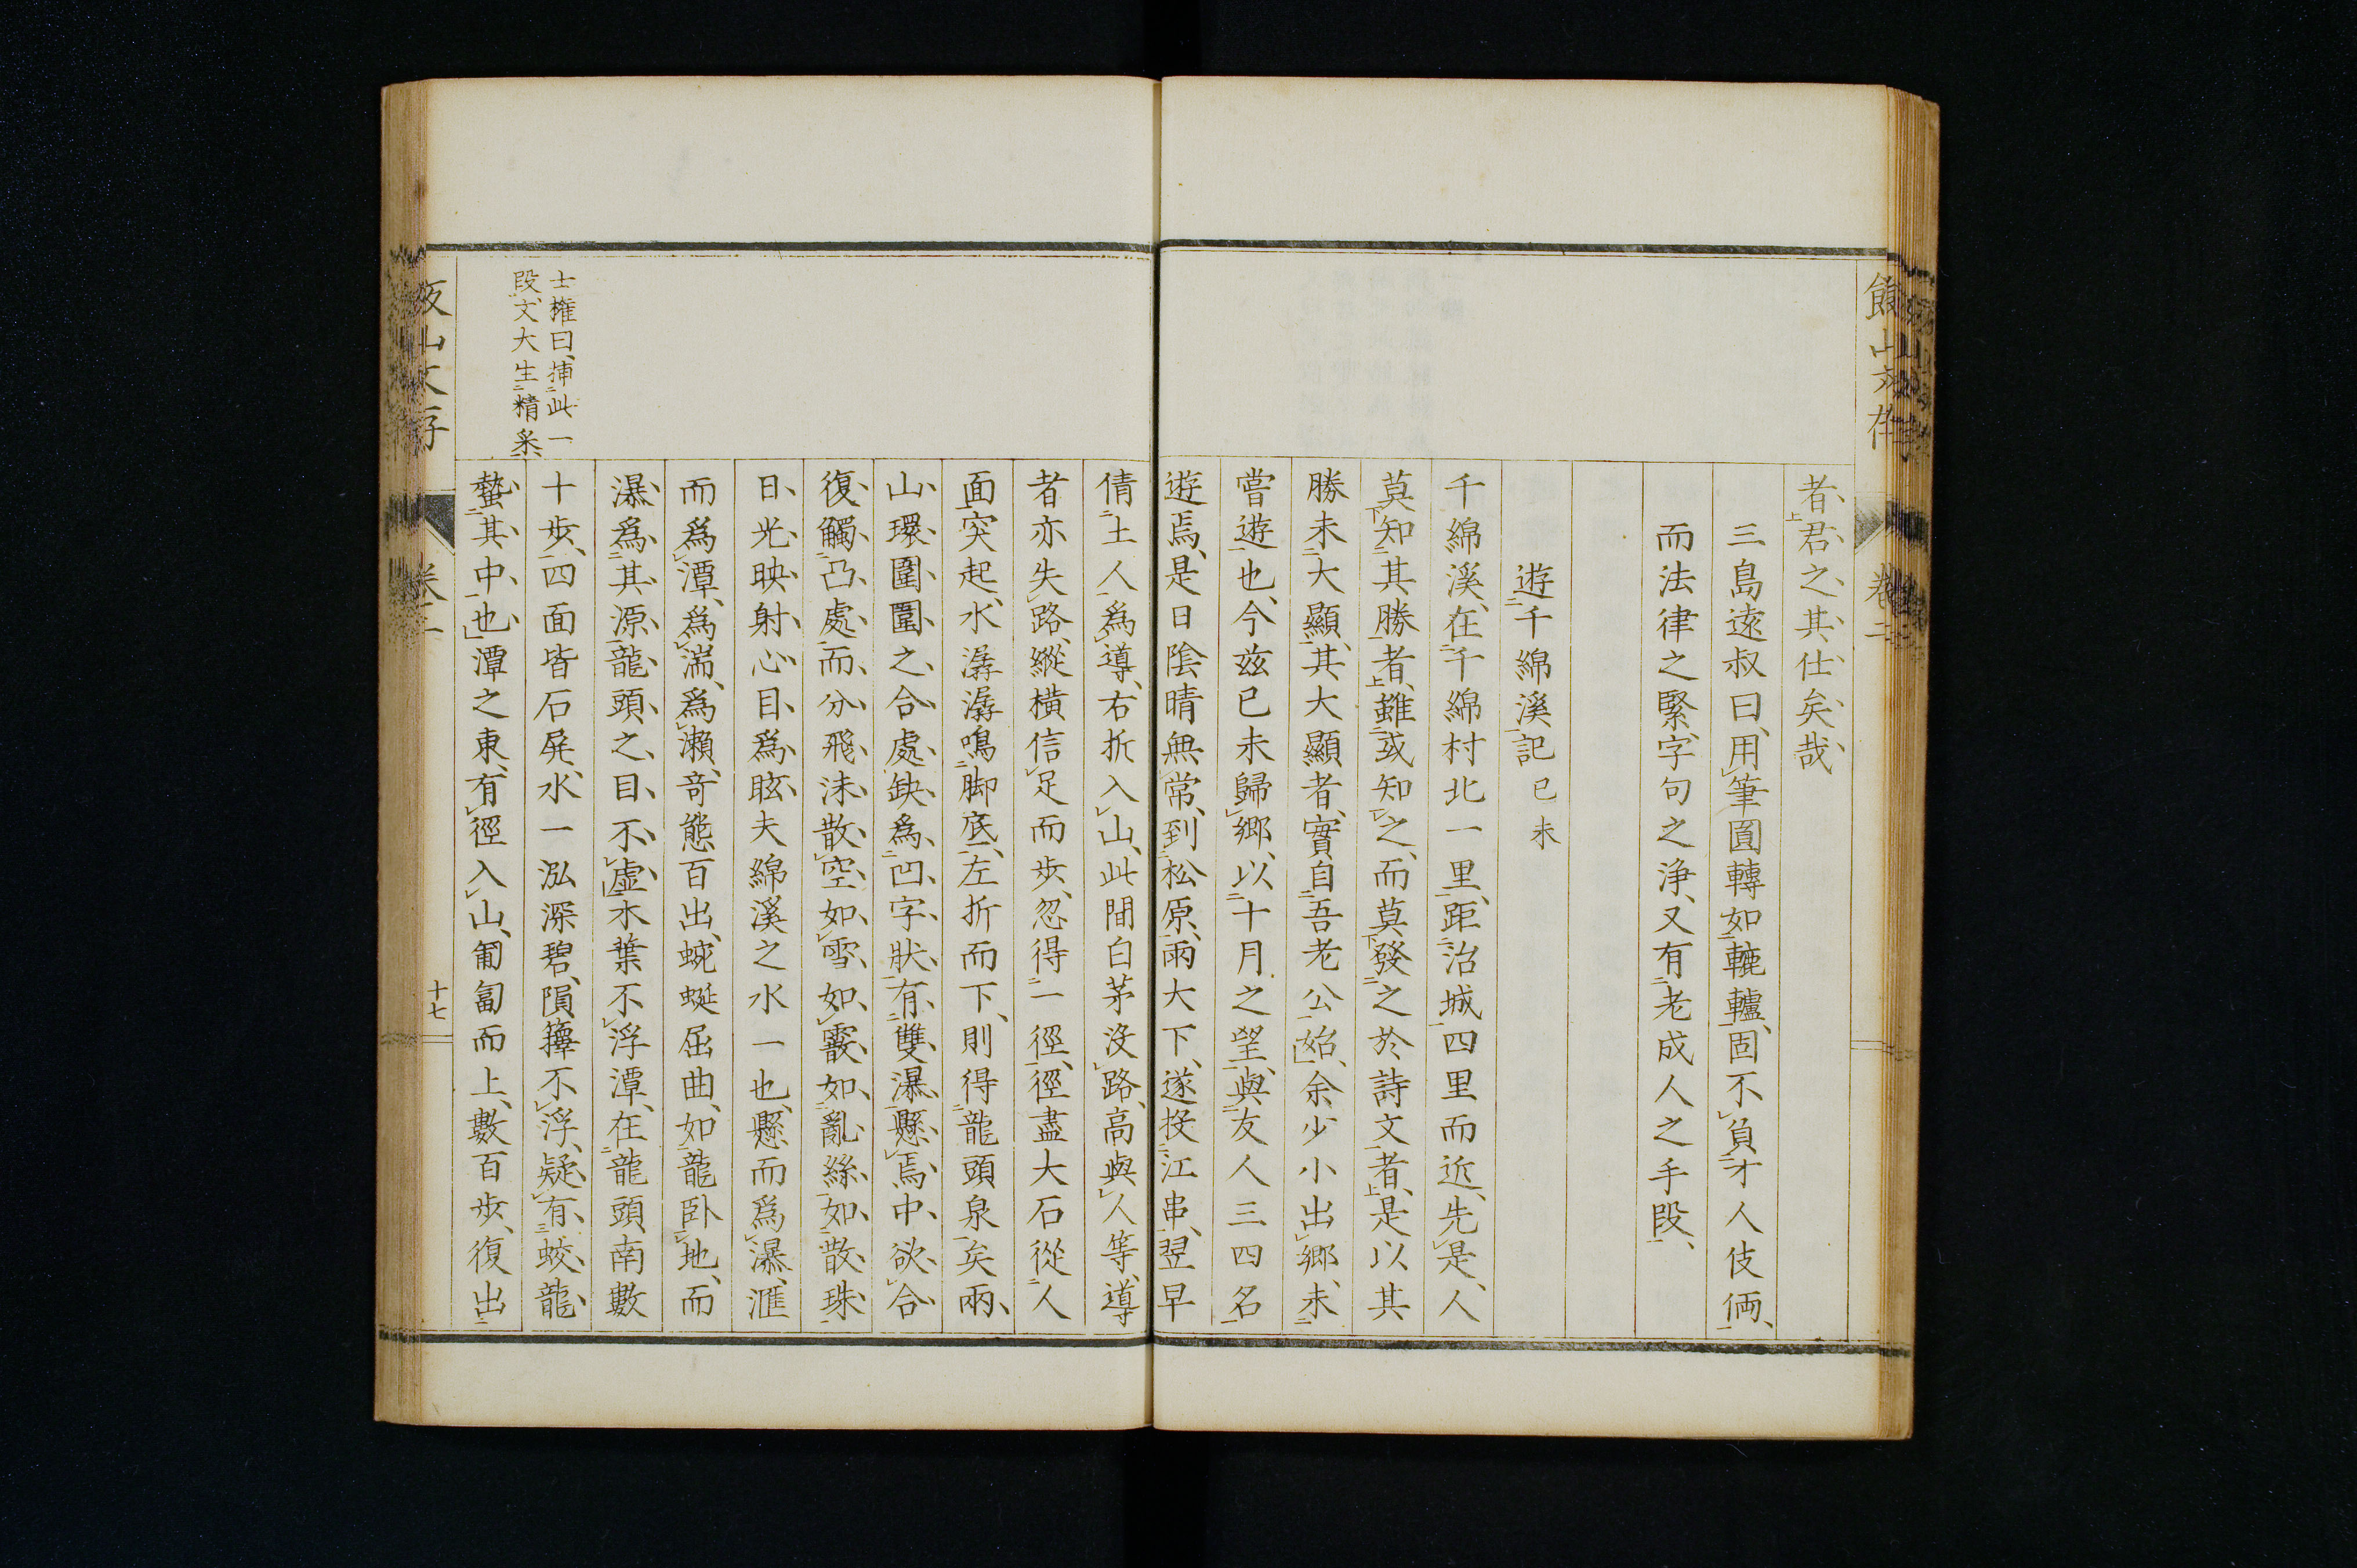 者、君之其仕矣哉
三島遠叔曰、用筆圓轉如轆轤、固不負才人伎倆、
而法律之緊、字句之浄、又有老成人之手段、
遊千綿溪記 己未
千綿溪、在千綿村北一里、距治城四里而近、先是、人
莫知其勝者、雖或知之、而莫發之於詩文者、是以其
勝未大顯、其大顯者、實自吾老公始、余少小出郷、未
嘗遊也、今茲己未歸郷、以十月之望、與友人三四名
遊焉、是日陰晴無常、到松原、雨大下、遂投江串、翌早
倩土人爲導、右折入山、此間白茅沒路、高與人等、導
者亦失路、縱橫信足而歩、忽得一徑、徑盡大石從人
面突起、水潺潺鳴脚底、左折而下、則得龍頭泉矣、兩
山環圍、圍之合處、缺爲凹字狀、有雙瀑懸焉、中欲合
復觸凸處、而分飛沫散空、如雪、如霰、如亂絲、如散珠
日光映射、心目爲眩、夫綿溪之水一也、懸而爲瀑、滙
而爲潭、爲湍、爲瀬、奇態百出、蜿蜒屈曲、如龍臥地、而
瀑爲其源、龍頭之目、不虛木葉不浮潭、在龍頭南數
十歩、四面皆石屏、水一泓深碧、隕籜不浮、疑有蛟龍
蟄其中也、潭之東、有徑入山、匍匐而上、數百歩、復出
士權曰、挿此一
段、文大生精采、
飯山文存
卷二
十七